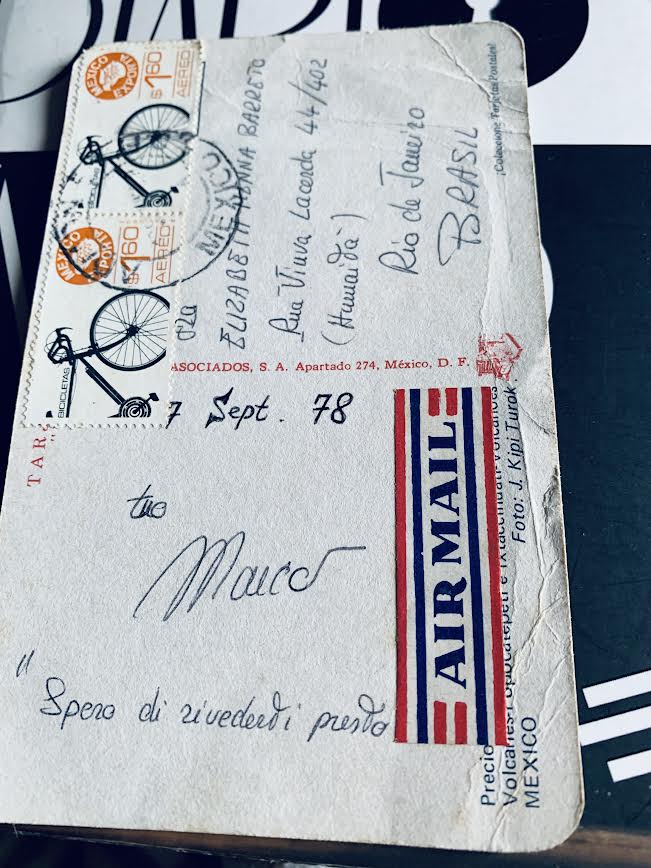 MEXICO EXPORTA
$1.60
AEREO
BICICLETAS
MEXICO EXPORTA
$1.60
AEREO
BICICLETAS
MEXICO
ELIZABETH VIANNA BARRETO
Rua Viuva Lacerda 44/402
(Humaità)
Rio de Janeiro
BRASIL
¡Coleccione Tarjetas Postales!
ASOCIADOS, S. A. Apartado 274, México, D. F.
TAR
7 Sept. 78
tuo
Marco
"Spero di rivederti presto
AIR MAIL
Precio
Volcanes Popocatepetl e Ixtaccihuatl-Volcanoes
MEXICO
Foto: J. Kipi Turok